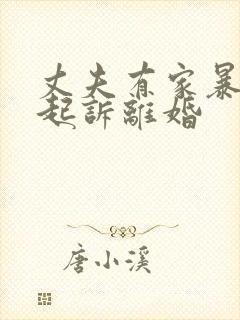 丈夫有家暴
起訴離婚
唐小溪